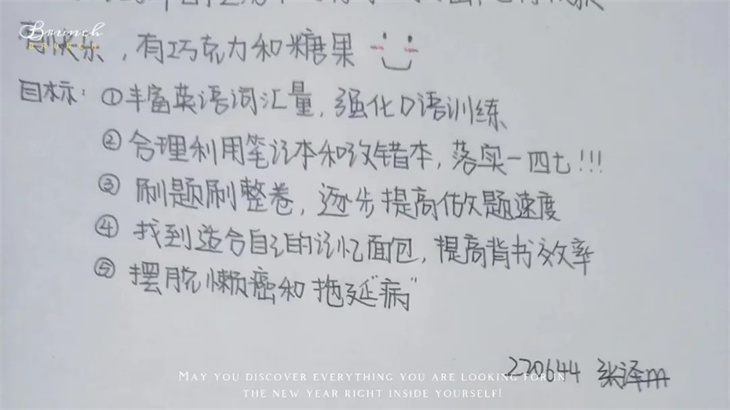 Brunch
有快乐，有巧克力和糖果
目标：①丰富英语词汇量，强化口语训练
②合理利用笔记本和改错本，落实一四七!!!
③刷题刷整卷，逐步提高做题速度
④找到适合自己的记忆面包，提高背书效率
⑤摆脱懒癌和拖延"病"
220644 张泽m
MAY YOU DISCOVER EVERYTHING YOU ARE LOOKING FOR IN
THE NEW YEAR RIGHT INSIDE YOURSELF!